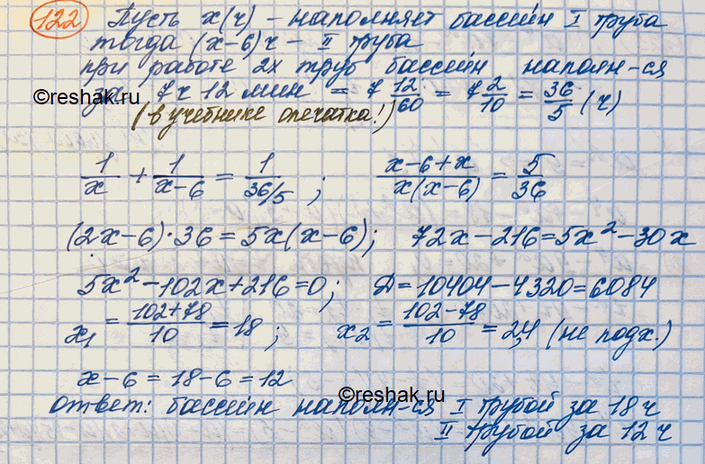 122 Пусть х(ч) – наполняет бассейн I труба
тогда (х-6)ч – II труба
при работе 2х труб бассейн наполн-ся
за 7ч 12 мин = 7 12/60 = 7 2/10 = 36/5 (ч)
©reshak.ru
(в учебнике опечатка!)
1/x + 1/(x-6) = 1/(36/5) ; (x-6+x)/(x(x-6)) = 5/36
(2x-6)·36 = 5x(x-6); 72x-216=5x²-30x
5x²-102x+216=0; D=10404-4320=6084
x₁ = (102+78)/10 = 18 ; x₂ = (102-78)/10 = 2,4 (не подх.)
x-6 = 18-6 = 12
©reshak.ru
ответ: бассейн наполн-ся I трубой за 18 ч
II трубой за 12 ч